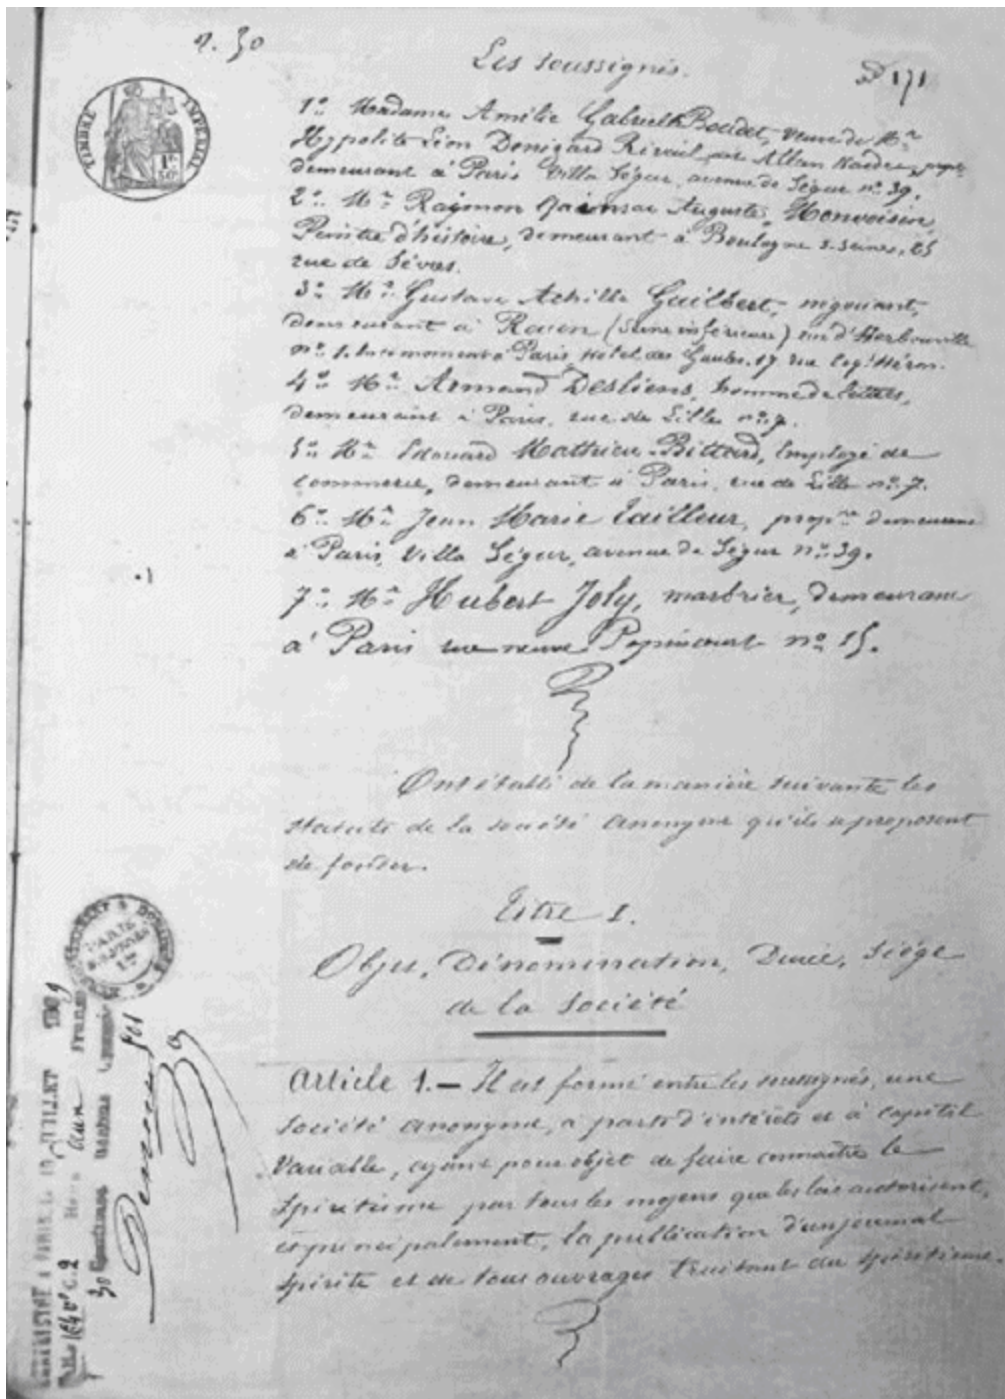 Les soussignés.
171
TIMBRE IMPERIAL
1° Madame Amélie Gabrielle Boudet, veuve de Mr
Hyppolite Léon Denizard Rivail, dit Allan Kardec,
demeurant à Paris Villa Ségur, avenue de Ségur n° 39.
2° Mr Raymon Auguste, Monvoisin,
Peintre d'histoire, demeurant à Boulogne s. Seine, 25
rue de Sèvres.
3° Mr Gustave Achille Guilbert, négociant,
demeurant à Rouen (Seine inférieure) rue d'Herbouville
n° 1. à Paris Hotel des Gaules. 17 rue Coq. Héron.
4° Mr Armand Desliens, homme de lettres,
demeurant à Paris, rue de Lille n° 7.
5° Mr Edouard Mathieu Bittard, Employé de
commerce, demeurant à Paris, rue de Lille n° 7.
6° Mr Jean Marie Tailleur, propre demeurant
à Paris, Villa Ségur, avenue de Ségur n° 39.
7° Mr Hubert Joly, marbrier, demeurant
à Paris rue neuve Popincourt n° 15.
Ont établi de la manière suivante les
statuts de la société anonyme qu'ils se proposent
de fonder.
Titre I.
Objet, Dénomination, Durée, Siége
de la Société
Article 1. — Il est formé entre les soussignés, une
société anonyme, à parts d'intérêts et à capital
Variable, ayant pour objet de faire connaître le
Spiritisme par tous les moyens que les lois autorisent,
et principalement, la publication d'un journal
spirite et de tous ouvrages traitant du spiritisme.
PARIS
ENREGISTRÉ A PARIS, LE JUILLET
C. 2 Francs
30 Centimes